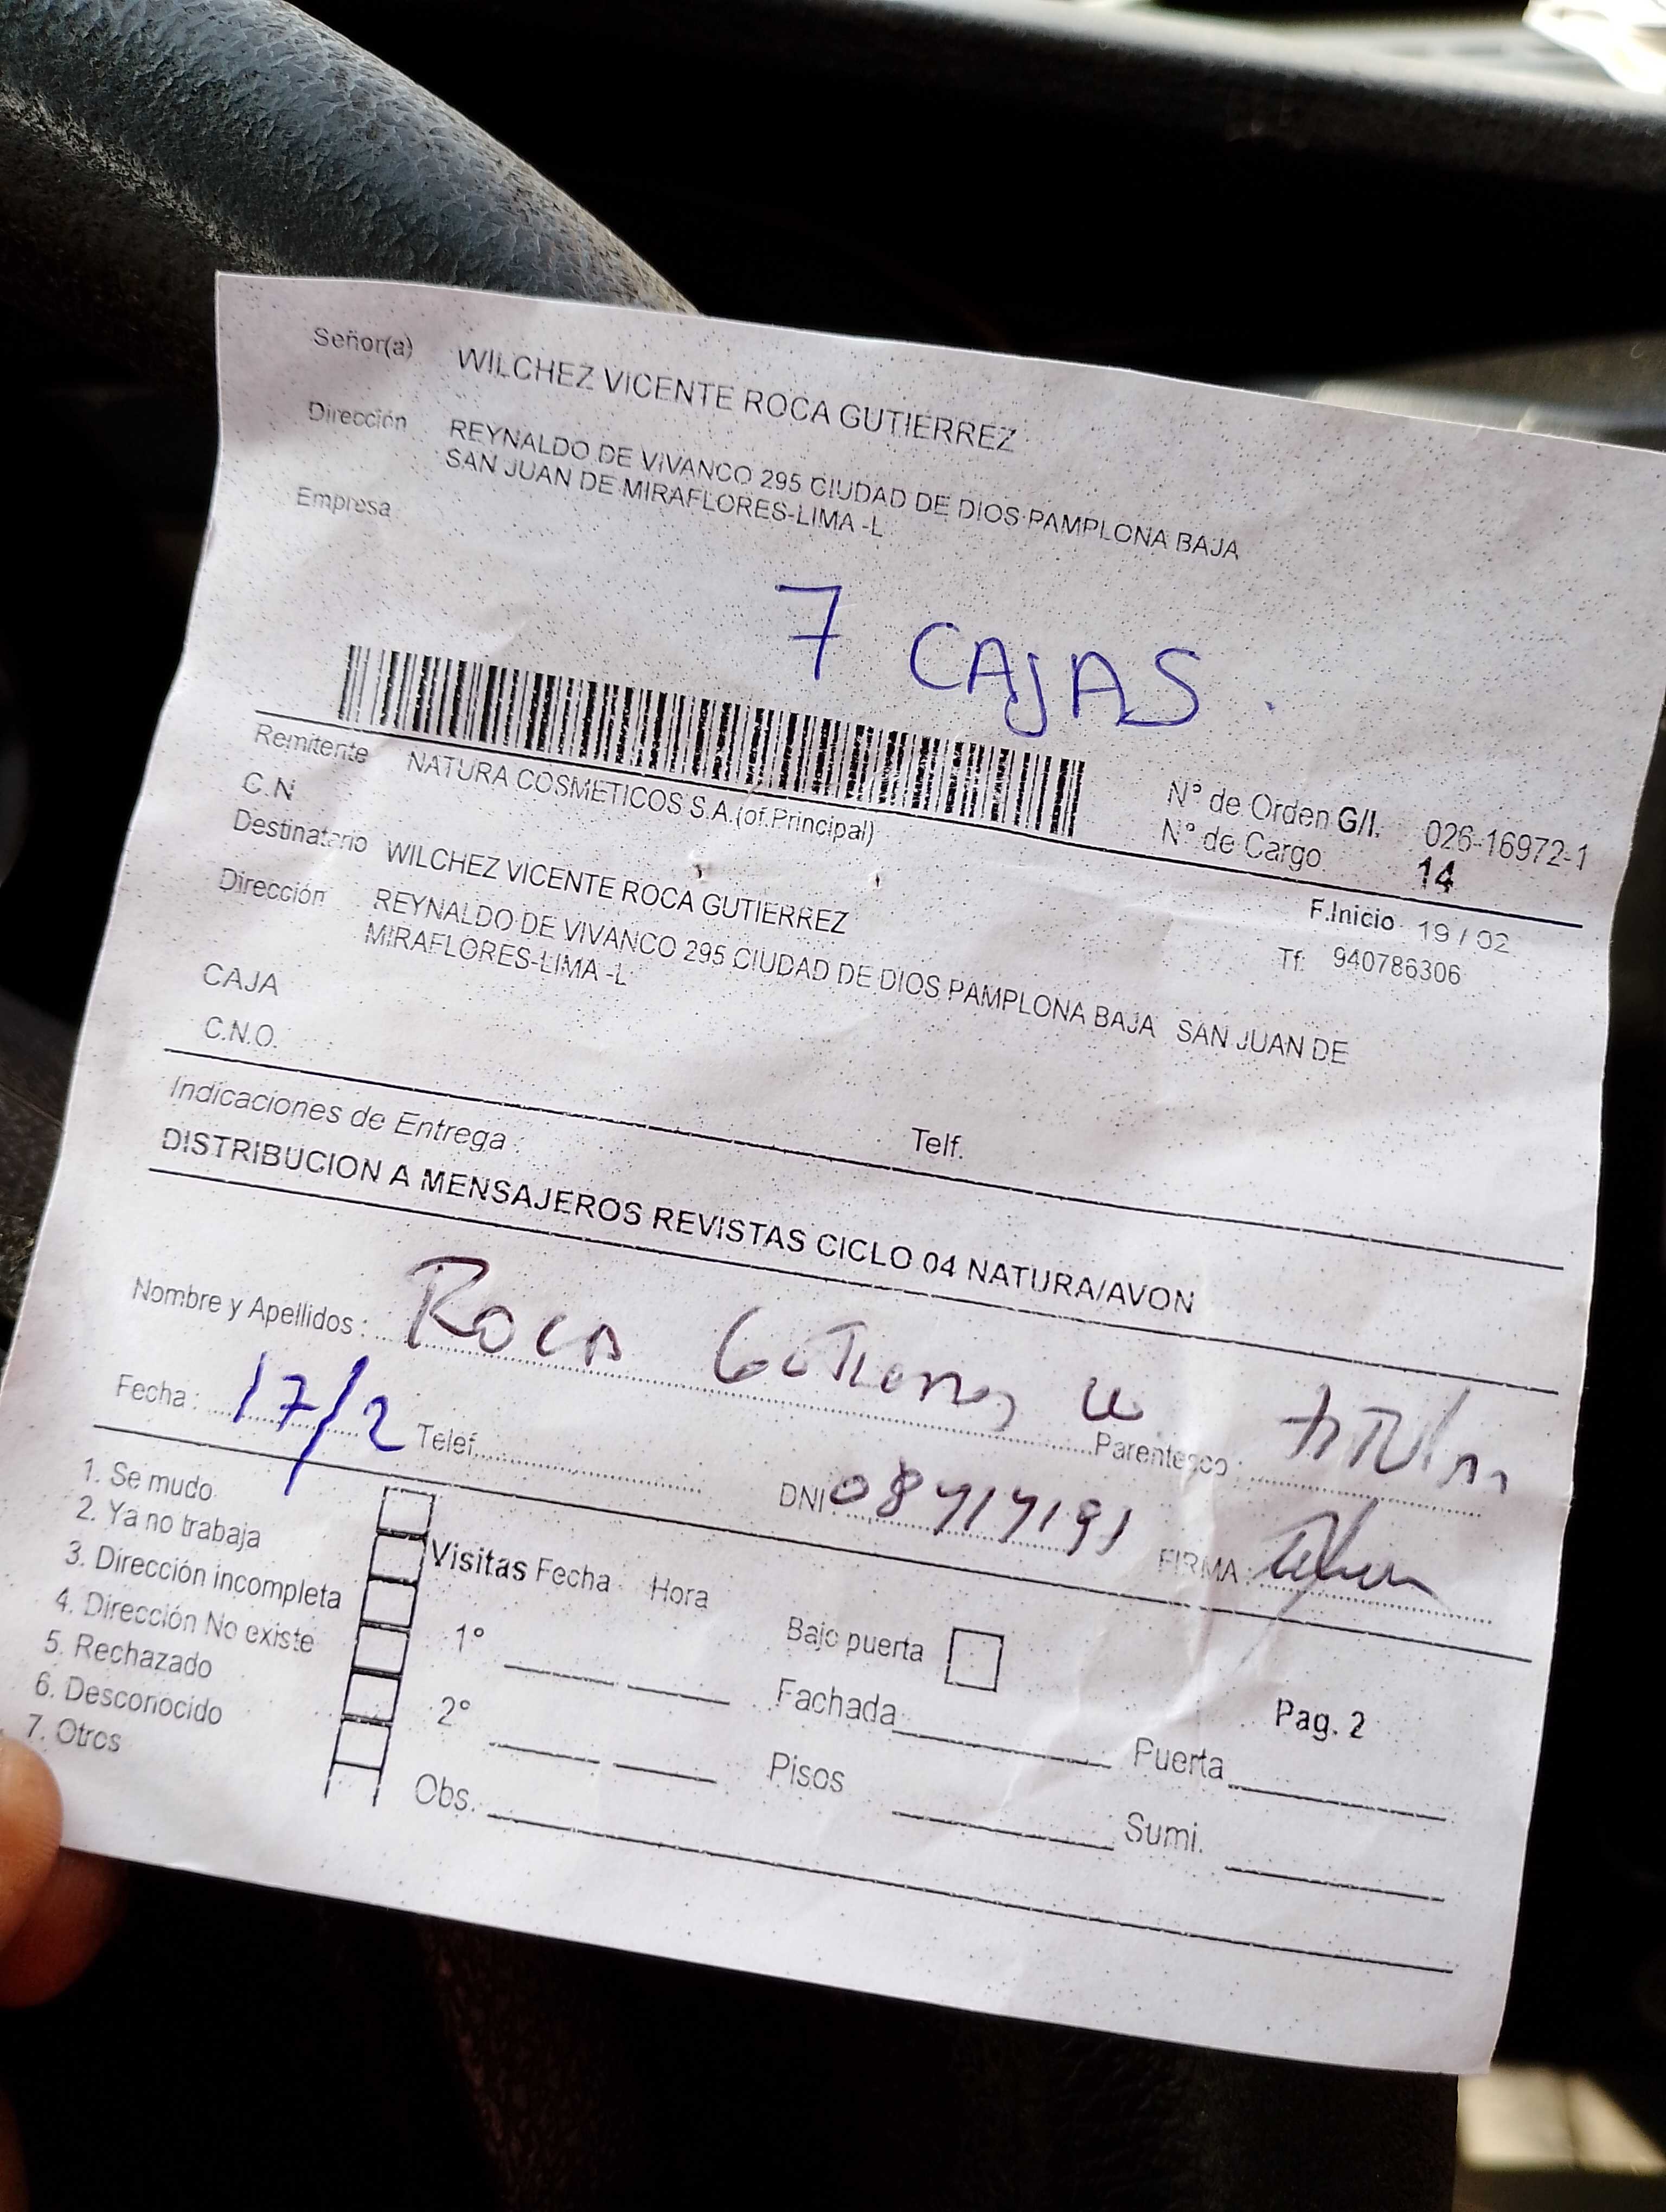 Señor(a) WILCHEZ VICENTE ROCA GUTIERREZ
Dirección REYNALDO DE VIVANCO 295 CIUDAD DE DIOS PAMPLONA BAJA
SAN JUAN DE MIRAFLORES-LIMA -L
Empresa
7 CAJAS.
Nº de Orden G/I. 026-16972-1
Nº de Cargo 14
Remitente NATURA COSMETICOS S.A.(of.Principal)
F.Inicio 19 / 02
C.N
Tf: 940786306
Destinatario WILCHEZ VICENTE ROCA GUTIERREZ
Dirección REYNALDO DE VIVANCO 295 CIUDAD DE DIOS PAMPLONA BAJA SAN JUAN DE
MIRAFLORES-LIMA -L
CAJA
C.N.O.
Telf.
Indicaciones de Entrega :
DISTRIBUCION A MENSAJEROS REVISTAS CICLO 04 NATURA/AVON
Nombre y Apellidos : Roca Parentesco :
Fecha : 17/2 Telef. DNI FIRMA :
1. Se mudo
2. Ya no trabaja
3. Dirección incompleta
4. Dirección No existe
5. Rechazado
6. Desconocido
7. Otros
Visitas Fecha Hora
1°
2°
Obs.
Bajo puerta
Fachada
Pisos
Pag. 2
Puerta
Sumi.